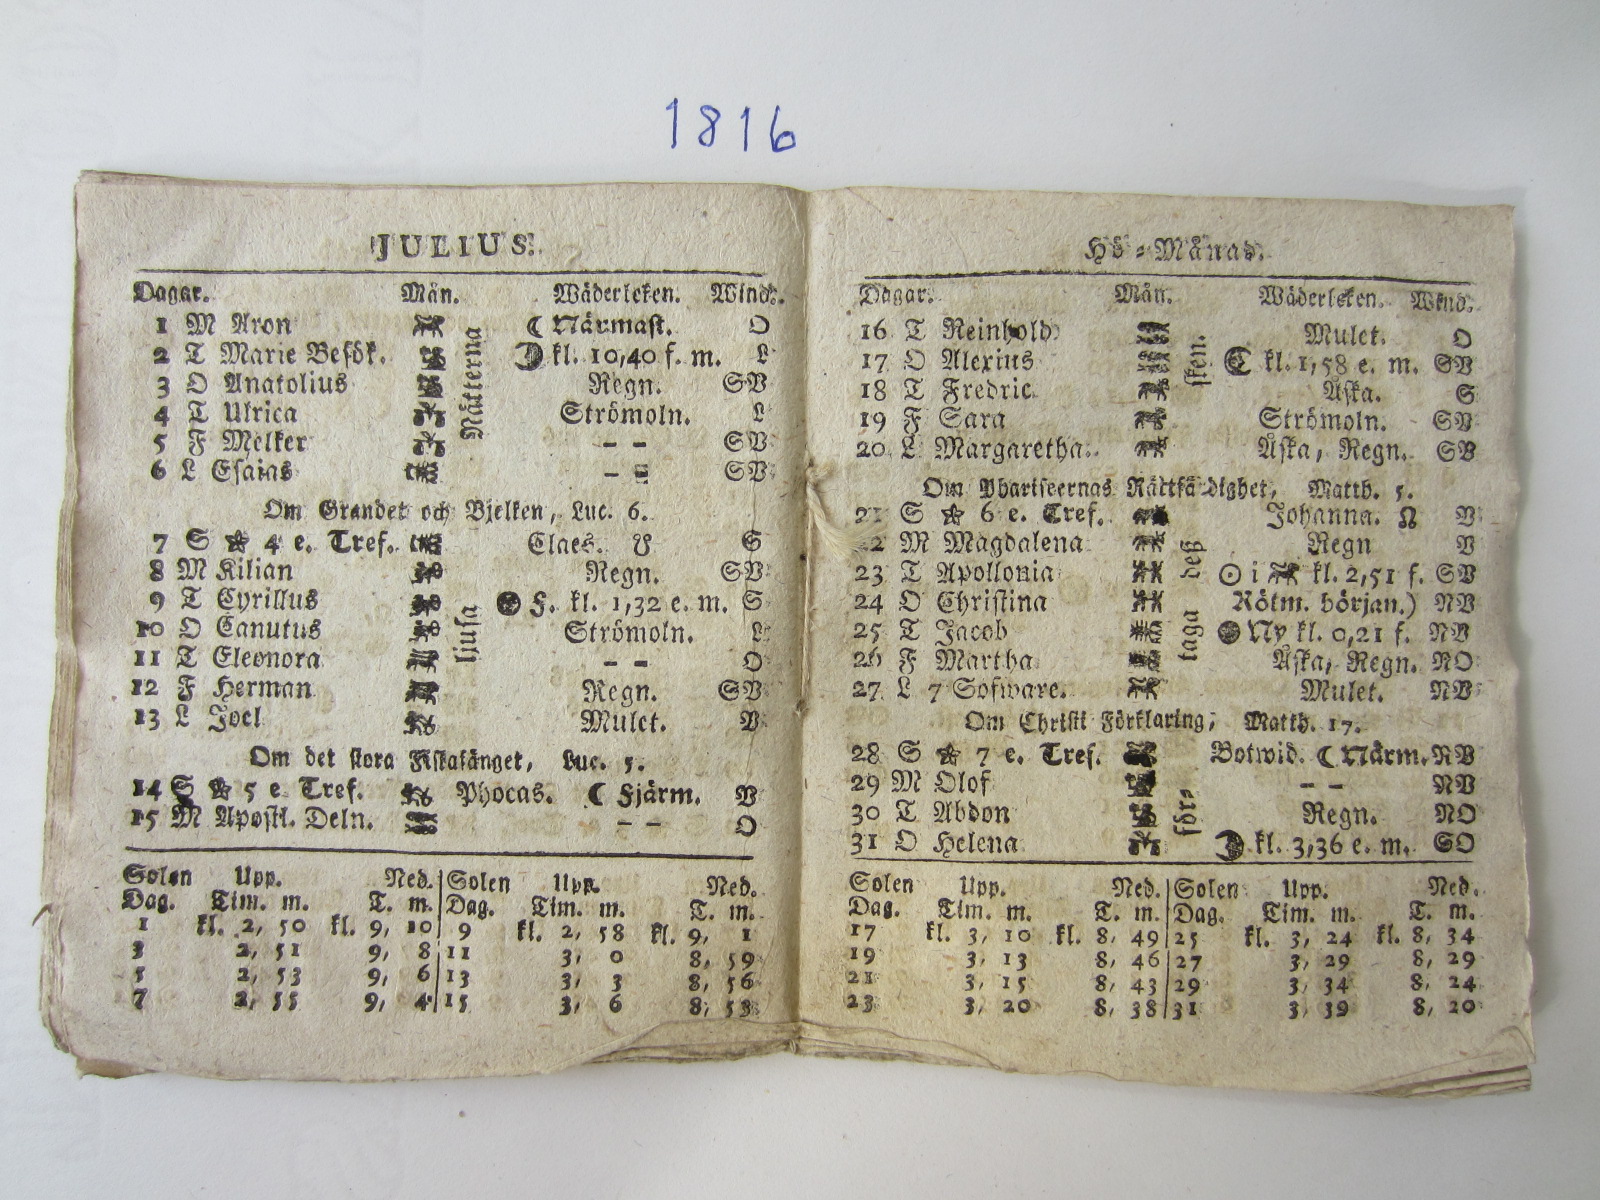 1816
JULIUS.
Dagar. Mån. Wäderleken. Wind.
1 M Aron ☾ Närmast. O
2 T Marie Besök. ☽ kl. 10,40 f. m. L
3 O Anatolius Regn. SV
4 T Ulrica Strömoln. L
5 F Melker – – SV
6 L Esaias – – SV
Nätterna
Om Grandet och Bjelken, Luc. 6.
7 S 4 e. Tref. Claes. ☋ S
8 M Kilian Regn. SV
9 T Cyrillus F. kl. 1,32 e. m. S
10 O Canutus Strömoln. L
11 T Eleonora – – O
12 F Herman Regn. SV
13 L Joel Mulet. V
ljusa
Om det stora Fiskafänget, Luc. 5.
14 S 5 e Tref. Phocas. ☾ Fjärm. V
15 M Apostl. Deln. – – O
Solen Upp. Ned. Solen Upp. Ned.
Dag. Tim. m. T. m. Dag. Tim. m. T. m.
1 kl. 2, 50 kl. 9, 10 9 kl. 2, 58 kl. 9, 1
3 2, 51 9, 8 11 3, 0 8, 59
5 2, 53 9, 6 13 3, 3 8, 56
7 2, 55 9, 4 15 3, 6 8, 53
Hö-Månad.
Dagar. Mån. Wäderleken. Wind.
16 T Reinhold Mulet. O
17 O Alexius ☾ kl. 1,58 e. m. SV
18 T Fredric Åska. S
19 F Sara Strömoln. SV
20 L Margaretha. Åska, Regn. SV
sken.
Om Phariseernas Rättfärdighet, Matth. 5.
21 S 6 e. Tref. Johanna. ☊ V
22 M Magdalena Regn V
23 T Apollonia ☉ i kl. 2,51 f. SV
24 O Christina Rötm. början.) NV
25 T Jacob Ny kl. 0,21 f. NV
26 F Martha Åska, Regn. NO
27 L 7 Sofware. Mulet. NV
taga heß
Om Christi Förklaring, Matth. 17.
28 S 7 e. Tref. Botwid. ☾ Närm. NV
29 M Olof – – NV
30 T Abdon Regn. NO
31 O Helena ☽ kl. 3,36 e. m. SO
för-
Solen Upp. Ned. Solen Upp. Ned.
Dag. Tim. m. T. m. Dag. Tim. m. T. m.
17 kl. 3, 10 kl. 8, 49 25 kl. 3, 24 kl. 8, 34
19 3, 13 8, 46 27 3, 29 8, 29
21 3, 15 8, 43 29 3, 34 8, 24
23 3, 20 8, 38 31 3, 39 8, 20